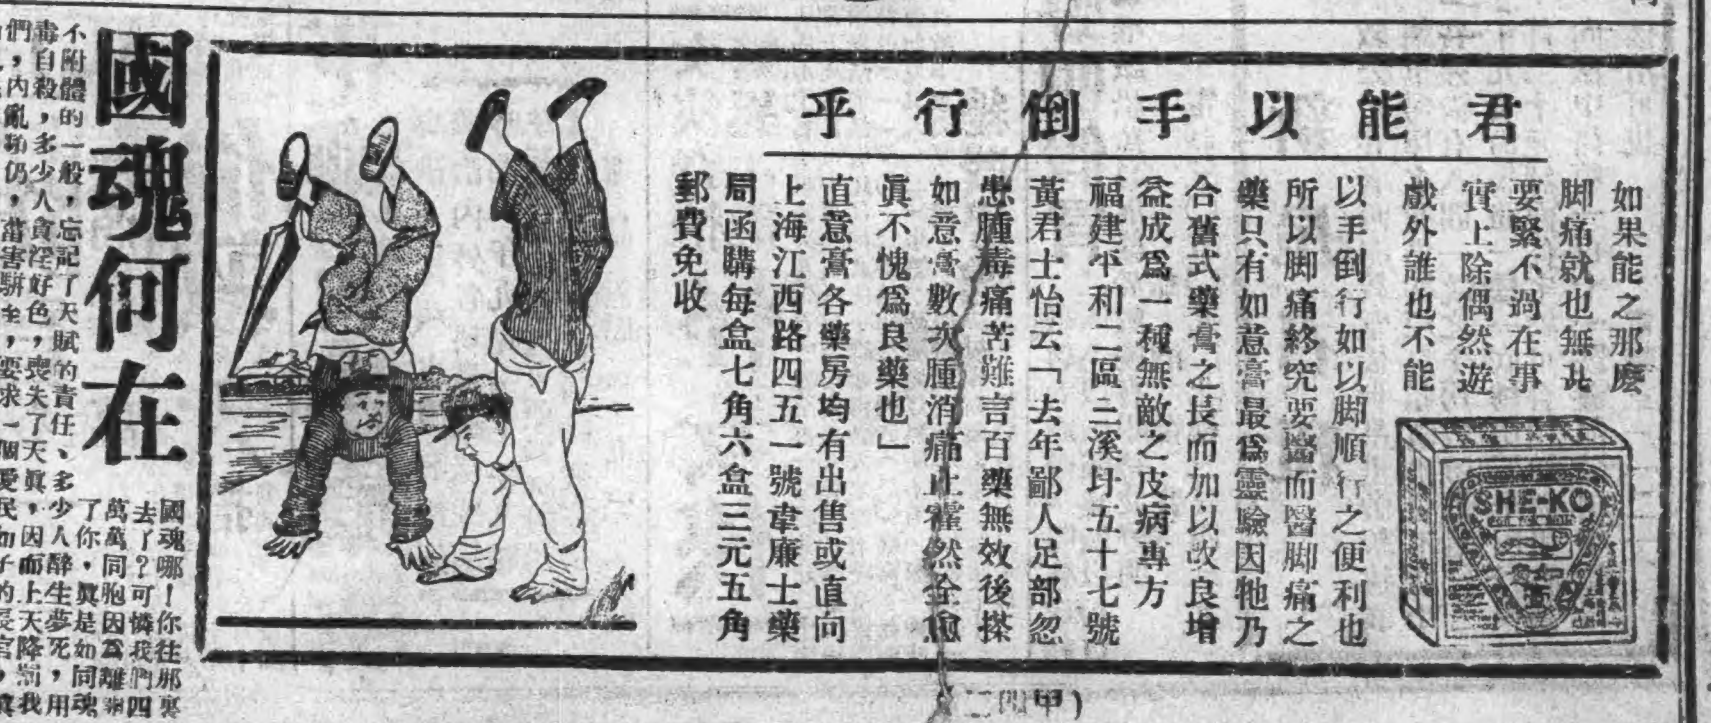 君能以手倒行乎
如果能之那麽
脚痛就也無甚
要緊不過在事
實上除偶然遊
戲外誰也不能
以手倒行如以脚順行之便利也
所以脚痛終究要醫而醫脚痛之
藥只有如意膏最爲靈驗因牠乃
合舊式藥膏之長而加以改良增
益成爲一種無敵之皮病專方
福建平和二區三溪圩五十七號
黃君士怡云「去年鄙人足部忽
患腫毒痛苦難言百藥無效後搽
如意膏數次腫消痛止霍然全愈
眞不愧爲良藥也」
直意膏各藥房均有出售或直向
上海江西路四五一號韋廉士藥
局函購每盒七角六盒三元五角
郵費免收
SHE-KO
(二四甲)
國魂何在
國魂哪!你往那裏
去了?可憐我們四
萬萬同胞因爲離
了你,眞是如同魂
不附體的一般,忘記了天賦的責任、多少人醉生夢死,用
毒自殺,多少人貪淫好色,喪失了天眞,因而上天降我
們,內亂頻仍,菑害駢生,要求一個愛民如子的長官,眞